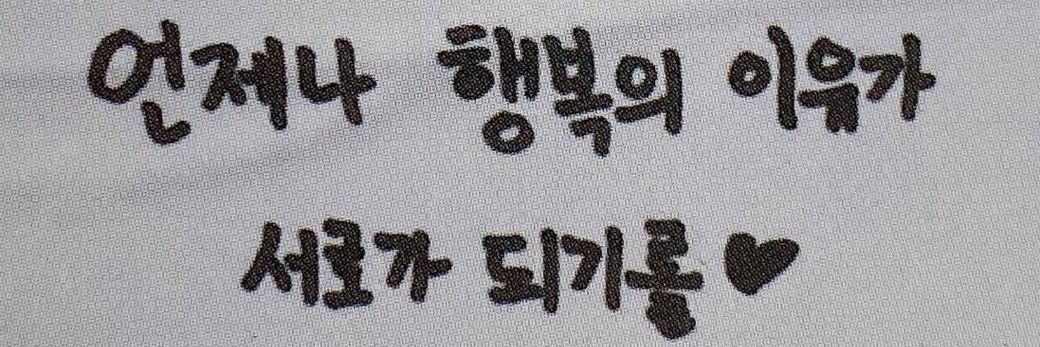 언제나 행복의 이유가
서로가 되기를♥